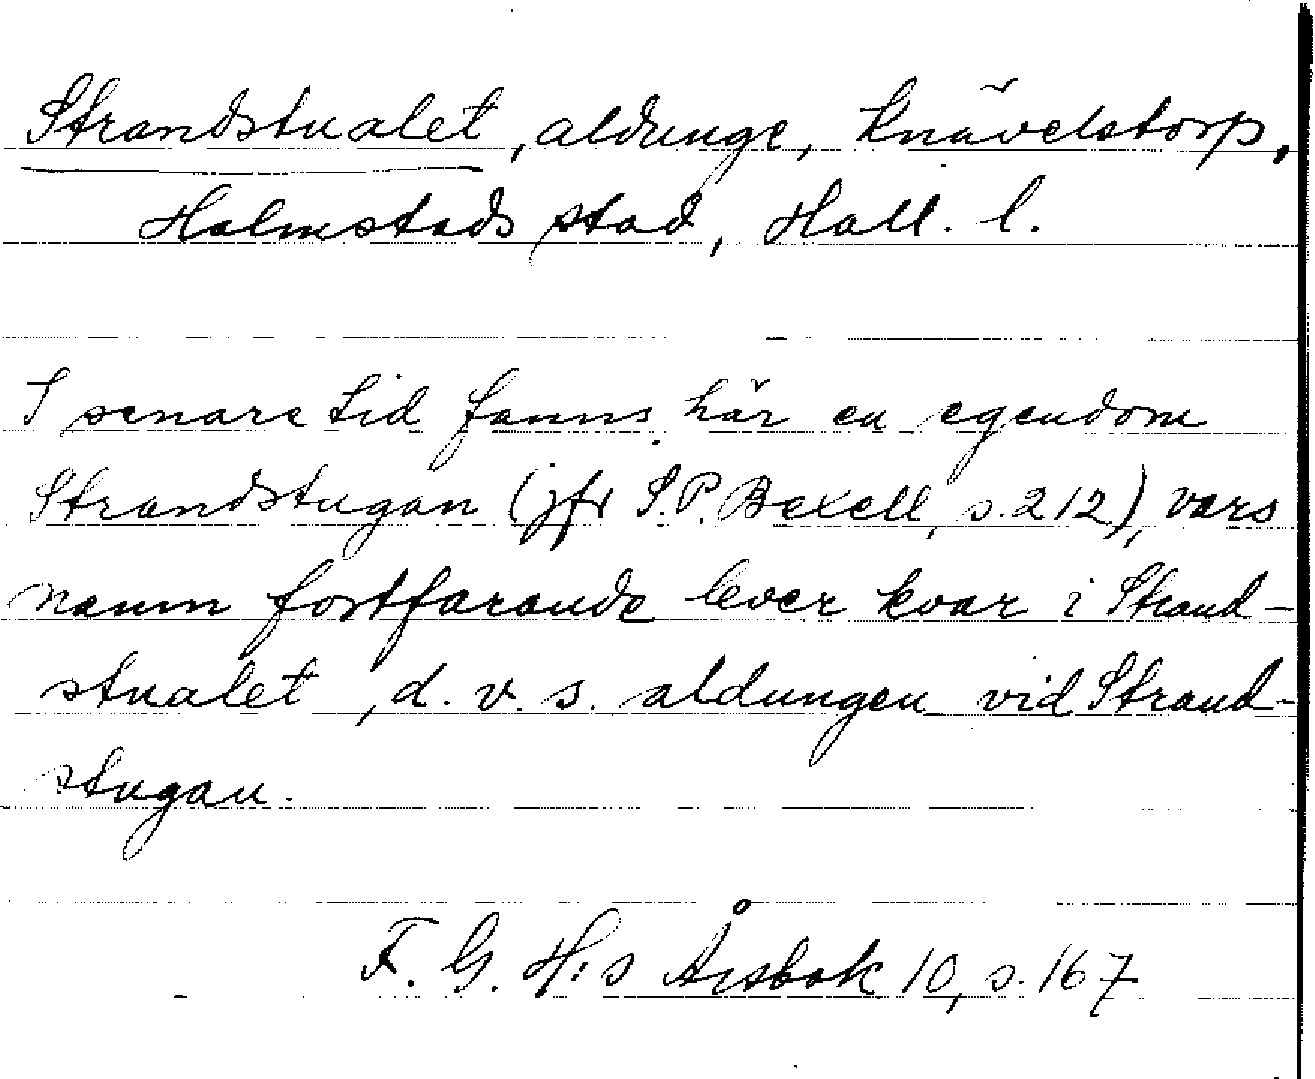 Strandstualet, aldunge, Knävelstorp,
Halmstads stad, Hall. l.
I senare tid fanns här en egendom
Strandstugan (jfr S.P. Bexell, s. 212), vars
namn fortfarande lever kvar i Strand-
stualet, d. v. s. aldungen vid Strand-
stugan.
F. G. H:s Årsbok 10, s. 167